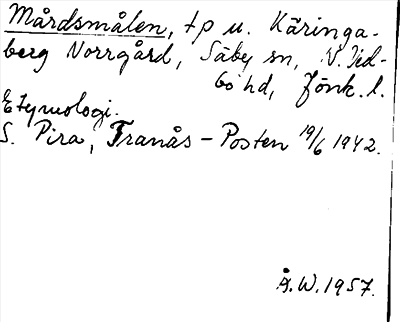 Mårdsmålen, tp u. Käringa-
berg Norrgård, Säby sn, N. Ved-
bo hd, Jönk. l.
Etymologi.
S. Pira, Tranås-Posten 19/6 1942.
Å.W. 1957.